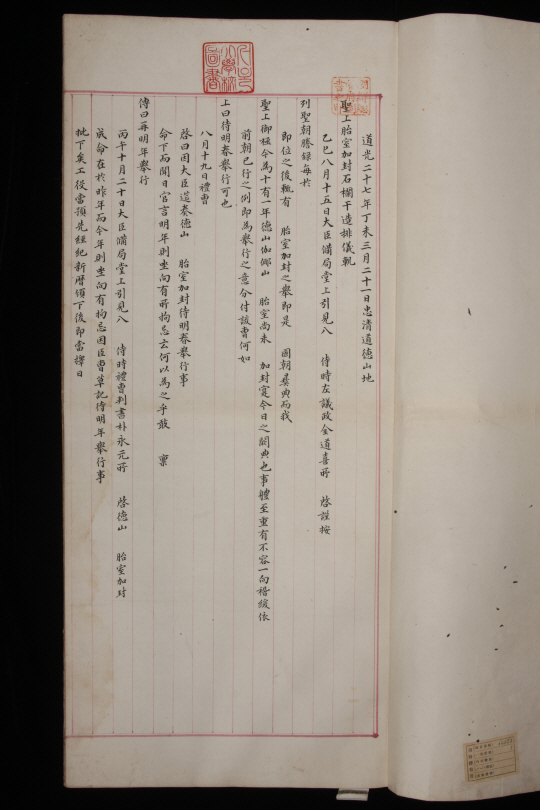 道光二十七年丁未三月二十一日忠清道德山地
聖上胎室加封石欄干造排儀軌
乙巳八月十五日大臣備局堂上引見入 侍時左議政金道喜所 啓謹按
列聖朝謄錄每於
即位之後輒有 胎室加封之擧即是 國朝彛典而我
聖上御極今為十有一年德山伽倻山 胎室尚未 加封寔今日之闕典也事體至重有不容一向稽緩依
前朝已行之例即為擧行之意分付該曹何如
上曰待明春擧行可也
八月十九日禮曹
啓曰因大臣筵奏德山 胎室加封待明春擧行事
命下而聞日官言明年則坐向有所拘忌云何以為之乎敢 稟
傳曰每明年擧行
丙午十月二十日大臣備局堂上引見入 侍時禮曹判書朴永元所 啓德山 胎室加封
成命在於昨年而今年則坐向有拘忌因臣曹草記待明年擧行事
批下矣工役當預先經紀新曆頒下後即當擇日